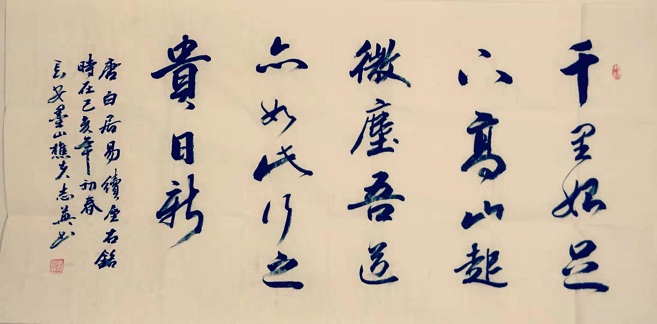 千里始足
下高山起
微塵吾道
亦如此行之
貴日新
唐白居易續座右銘
時在己亥年初春
长安墨山樵夫志英书